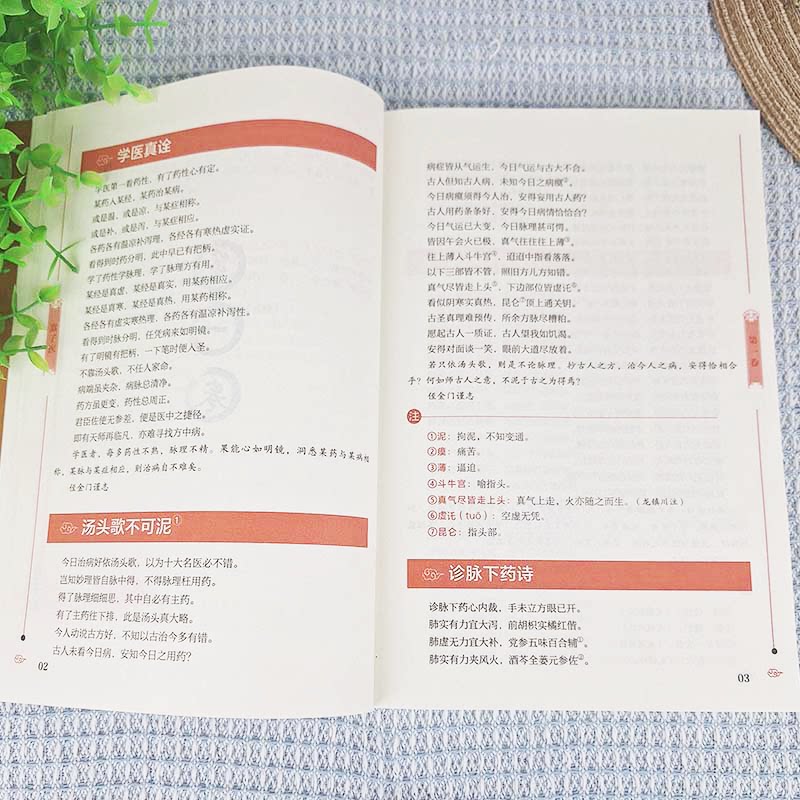 学医真诠
学医第一看药性，有了药性心有定。
某药入某经，某药治某病。
或是温，或是凉，与某症相称。
或是补，或是泻，与某症相应。
各药各有温凉补泻理，各经各有寒热虚实证。
看得到时药分明，此中早已有把柄。
学了药性学脉理，学了脉理方有用。
某经是真虚，某经是真实，用某药相应。
某经是真寒，某经是真热，用某药相称。
各经各有虚实寒热理，各药各有温凉补泻性。
看得到时脉分明，任凭病来如明镜。
有了明镜有把柄，一下笔时便入圣。
不靠汤头歌，不任人家命。
病端虽夹杂，病脉总清净。
药方虽更变，药性总周正。
君臣佐使无参差，便是医中之捷径。
即有天师再临凡，亦难寻找方中病。
学医者，每多药性不熟，脉理不精。果能心如明镜，洞悉某药与某病相
称，某脉与某症相应，则治病自不难矣。
任金门谨志
汤头歌不可泥①
今日治病好依汤头歌，以为十大名医必不错。
岂知妙理皆自脉中得，不得脉理枉用药。
得了脉理细细思，其中自必有主药。
有了主药往下排，此是汤头真大略。
今人动说古方好，不知以古治今多有错。
古人未看今日病，安知今日之用药？
02
病症皆从气运生，今日气运与古大不合。
古人但知古人病，未知今日之病瘼②。
今日病瘼须得今人治，安得妄用古人药？
古人用药条条好，安得今日病情恰恰合？
今日气运已大变，今日脉理甚可愕。
皆因午会火已极，真气往往往上薄③。
往上薄入斗牛宫④，迢迢中指看落落。
以下三部皆不管，照旧方儿方知错。
真气尽皆走上头⑤，下边部位皆虚讬⑥。
看似阴寒实真热，昆仑⑦顶上通关钥。
古圣真理难预传，所余方脉尽糟粕。
愿起古人一质证，古人望我如饥渴。
安得对面谈一笑，眼前的大道尽放着。
若只依汤头歌，则是不论脉理。抄古人之方，治今人之病，安得恰相合
乎？何如师古人之意，不泥于古之为得焉？
任金门谨志
注
①泥：拘泥，不知变通。
②瘼：痛苦。
③薄：逼迫。
④斗牛宫：喻指头。
⑤真气尽皆走上头：真气上走，火亦随之而生。（龙镇川注）
⑥虚讬（tuō）：空虚无凭。
⑦昆仑：指头部。
诊脉下药诗
诊脉下药心内裁，手未立方眼已开。
肺实有力宜大泻，前胡枳实橘红偕。
肺虚无力宜大补，党参五味百合辅①。
肺实有力夹风火，酒芩全蒌元参佐②。
第一卷
03